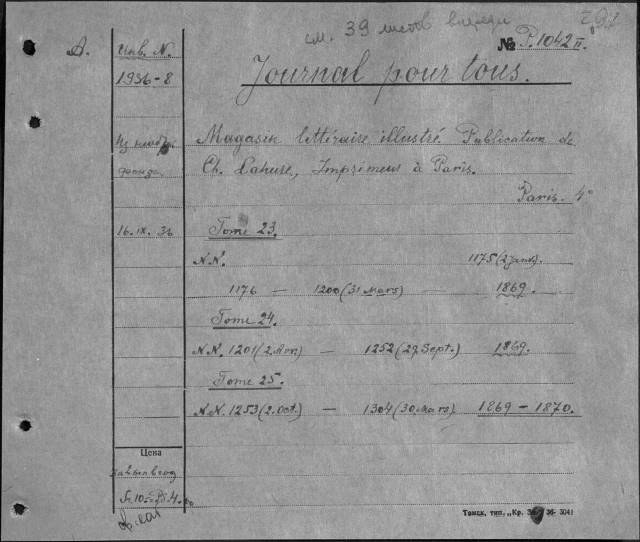 см. 39 листов впереди
А.
Инв. N.
№ P.1042 II.
1936-8
Journal pour tous.
Из
фонда
Magasin littéraire illustré. Publication de
Ch. Lahure, Imprimeur à Paris.
Paris. 4°
16.IX.36
Tome 23.
N.N. 1175 (2 janv.)
1176 — 1200 (31 Mars) — 1869.
Tome 24.
N.N. 1201 (2. Avr.) — 1252 (29. Sept.) 1869.
Tome 25.
N.N. 1253 (2. Oct.) — 1304 (30 Mars) 1869 — 1870.
Цена
за
Томск, тип. „Кр. 36- 5041